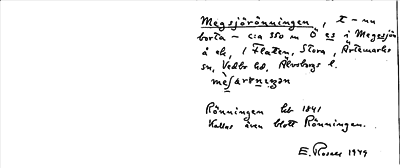 Megsjörönningen, t – nu
borta – c:a 350 m Ö es i Megesjön
å ek, 1 Flaten, Stora, Ärtemarks
sn, Vedbo hd, Älvsborgs l.
Rönningen beb 1841
Kallas även blott Rönningen.
E. Rosell 1949